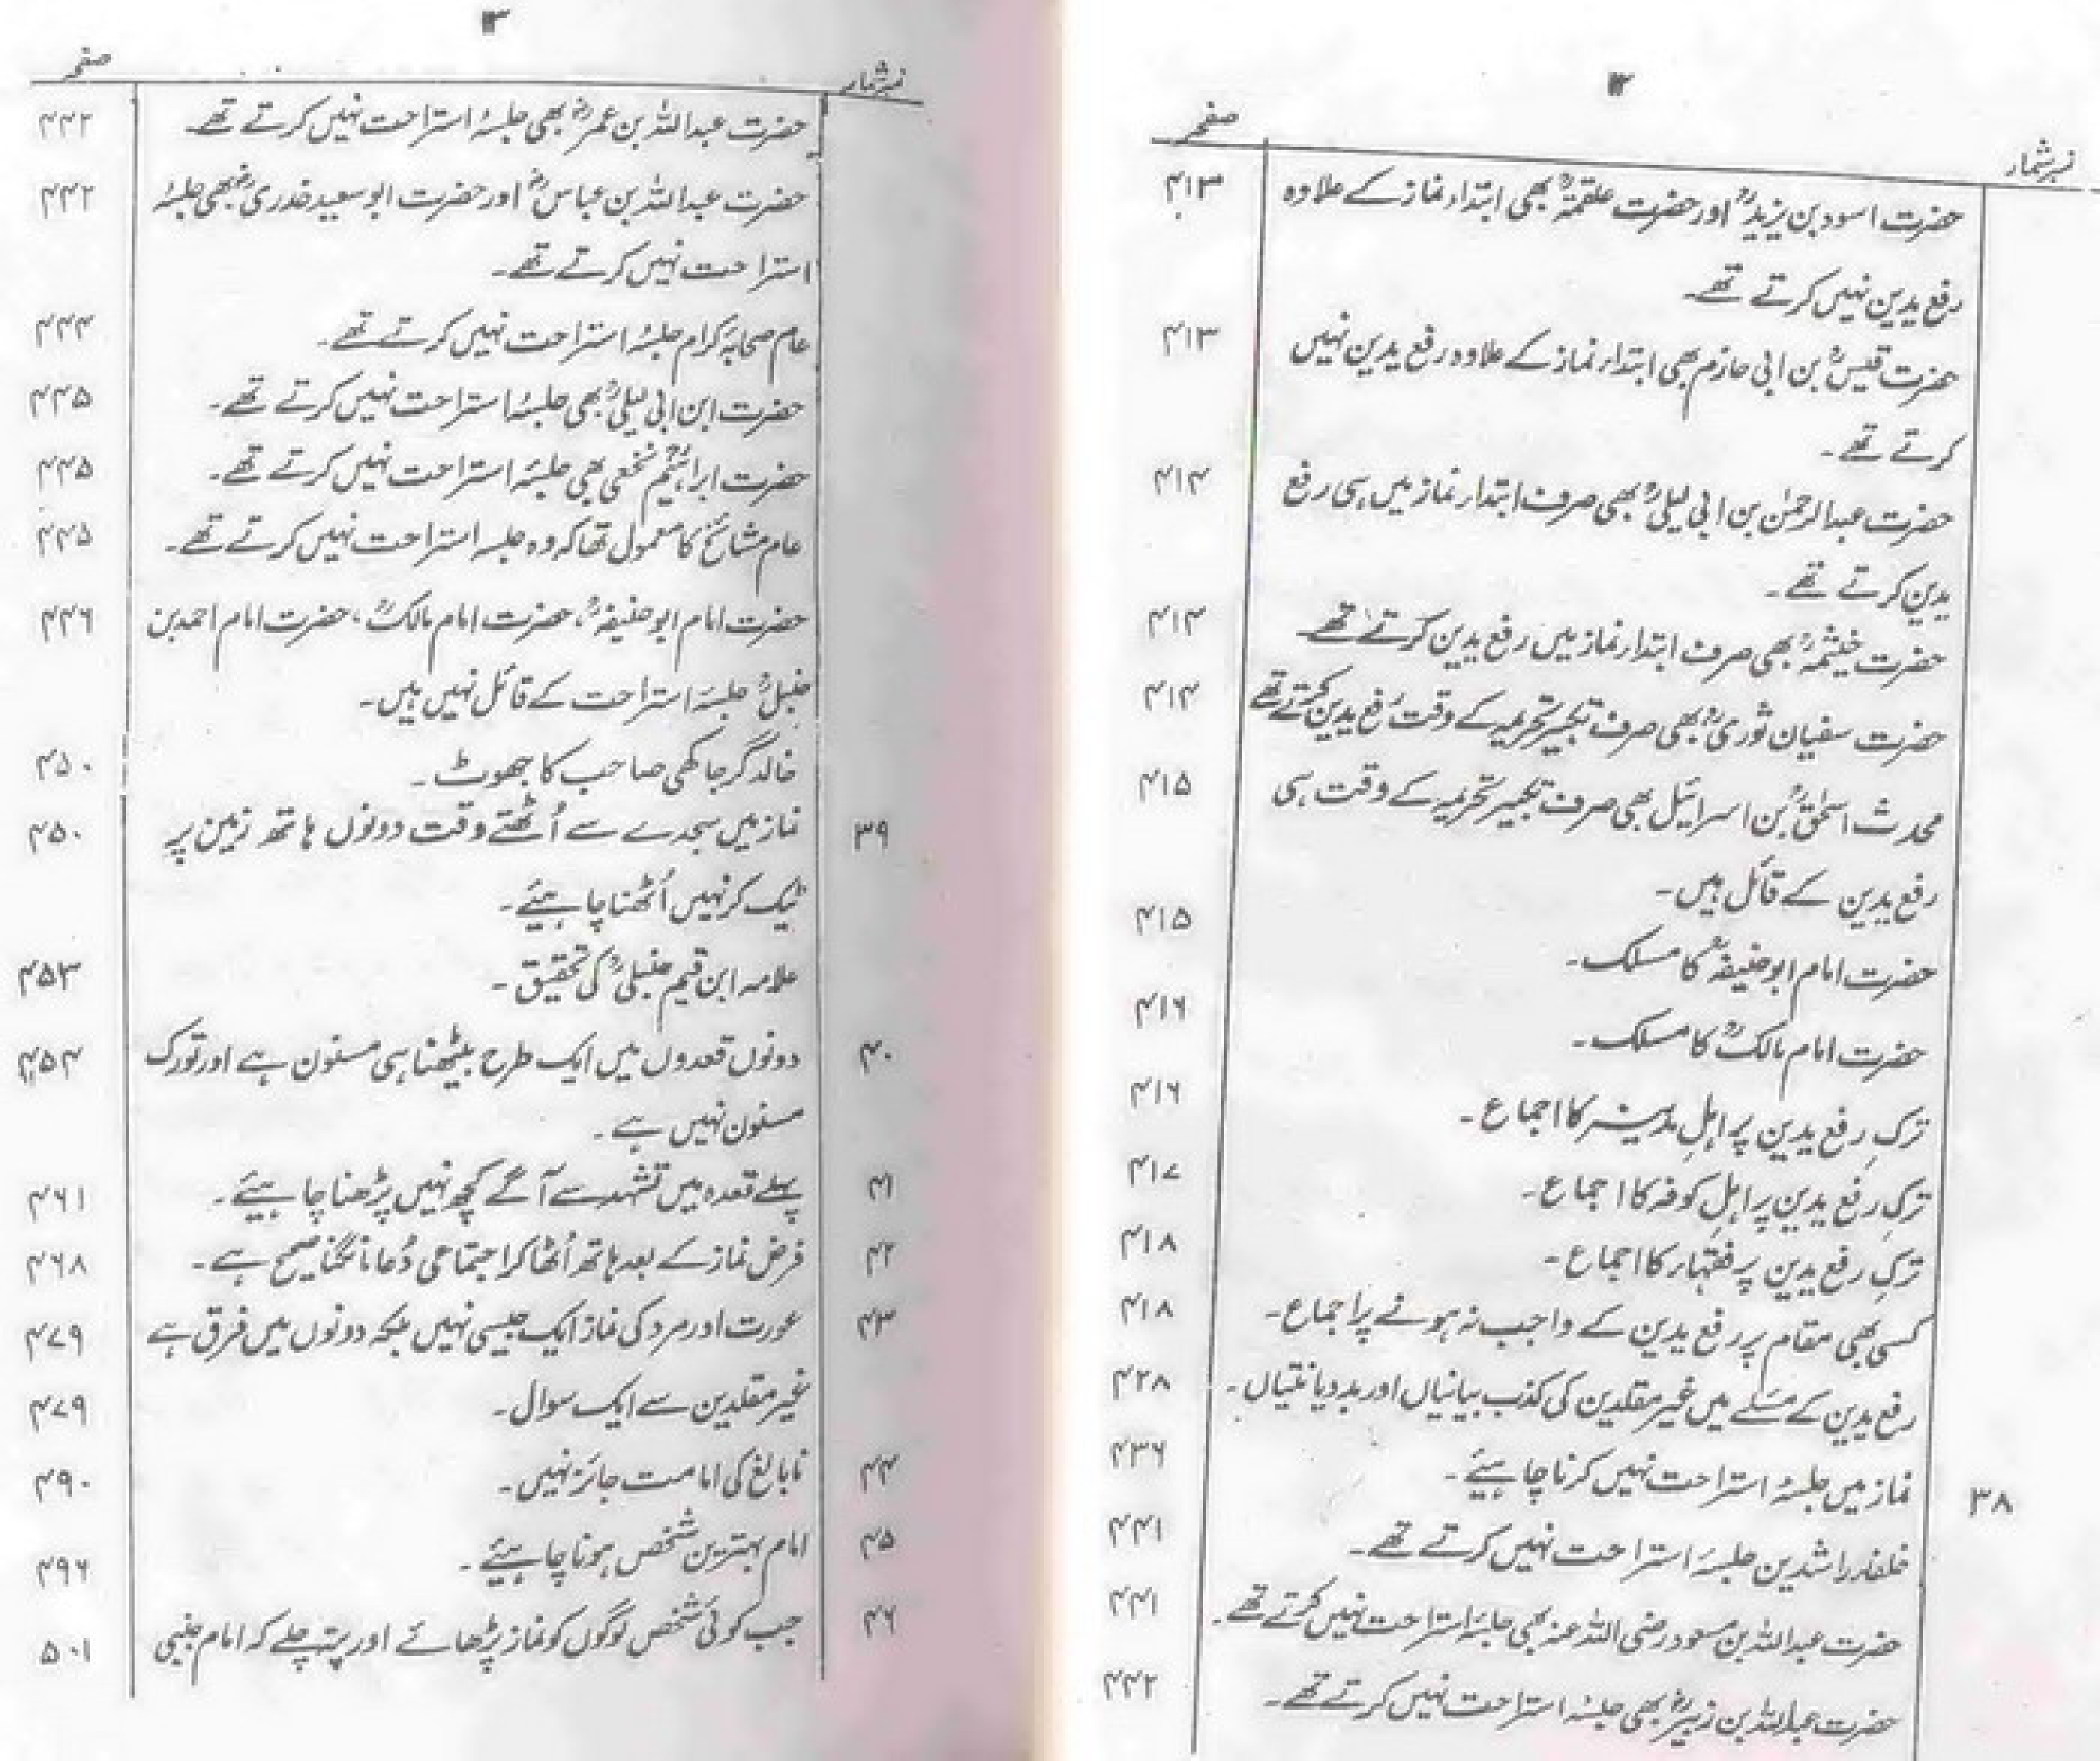 ۱۲
نمبرشمار صفحہ
حضرت اسود بن یزیدؒ اور حضرت علقمہؒ بھی ابتداء نماز کے علاوہ ۴۱۳
رفع یدین نہیں کرتے تھے۔
حضرت قیسؒ بن ابی حازم بھی ابتداء نماز کے علاوہ رفع یدین نہیں ۴۱۳
کرتے تھے۔
حضرت عبدالرحمٰن بن ابی لیلیٰؒ بھی صرف ابتداء نماز میں ہی رفع ۴۱۴
یدین کرتے تھے۔
حضرت خیثمہؒ بھی صرف ابتداء نماز میں رفع یدین کرتے تھے ۴۱۴
حضرت سفیان ثوریؒ بھی صرف تکبیر تحریمہ کے وقت رفع یدین کرتے تھے ۴۱۴
محدث اسحٰقؒ بن اسرائیل بھی صرف تکبیر تحریمہ کے وقت ہی ۴۱۵
رفع یدین کے قائل ہیں۔
حضرت امام ابوحنیفہؒ کا مسلک۔ ۴۱۵
حضرت امام مالکؒ کا مسلک۔ ۴۱۶
ترکِ رفع یدین پر اہلِ مدینہ کا اجماع۔ ۴۱۶
ترکِ رفع یدین پر اہلِ کوفہ کا اجماع۔ ۴۱۷
ترکِ رفع یدین پر فقہاء کا اجماع۔ ۴۱۸
کسی بھی مقام پر رفع یدین کے واجب نہ ہونے پر اجماع۔ ۴۱۸
رفع یدین کے مسئلے میں غیر مقلدین کی کذب بیانیاں اور بددیانتیاں۔ ۴۲۸
۳۸ نماز میں جلسۂ استراحت نہیں کرنا چاہیئے۔ ۴۳۶
خلفاء راشدین جلسۂ استراحت نہیں کرتے تھے۔ ۴۴۱
حضرت عبداللہ بن مسعود رضی اللہ عنہ بھی جلسۂ استراحت نہیں کرتے تھے۔ ۴۴۱
حضرت عبداللہ بن زبیرؓ بھی جلسۂ استراحت نہیں کرتے تھے۔ ۴۴۲
۱۳
نمبرشمار صفحہ
حضرت عبداللہ بن عمرؓ بھی جلسۂ استراحت نہیں کرتے تھے۔ ۴۴۲
حضرت عبداللہ بن عباسؓ اور حضرت ابو سعید خدریؓ بھی جلسۂ ۴۴۲
استراحت نہیں کرتے تھے۔
عام صحابہ کرام جلسۂ استراحت نہیں کرتے تھے۔ ۴۴۴
حضرت ابن ابی لیلیٰؒ بھی جلسۂ استراحت نہیں کرتے تھے۔ ۴۴۵
حضرت ابراہیمؒ نخعی بھی جلسۂ استراحت نہیں کرتے تھے۔ ۴۴۵
عام مشائخ کا معمول تھا کہ وہ جلسہ استراحت نہیں کرتے تھے۔ ۴۴۵
حضرت امام ابوحنیفہؒ، حضرت امام مالکؒ، حضرت امام احمد بن ۴۴۶
حنبلؒ جلسۂ استراحت کے قائل نہیں ہیں۔
خالد گرجاکھی صاحب کا جھوٹ۔ ۴۵۰
۳۹ نماز میں سجدے سے اُٹھتے وقت دونوں ہاتھ زمین پر ۴۵۰
ٹیک کر نہیں اُٹھنا چاہیئے۔
علامہ ابن قیم حنبلیؒ کی تحقیق۔ ۴۵۳
۴۰ دونوں قعدوں میں ایک طرح بیٹھنا ہی مسنون ہے اور تورک ۴۵۴
مسنون نہیں ہے۔
۴۱ پہلے قعدہ میں تشہد سے آگے کچھ نہیں پڑھنا چاہیئے۔ ۴۶۱
۴۲ فرض نماز کے بعد ہاتھ اُٹھا کر اجتماعی دُعا مانگنا صحیح ہے۔ ۴۶۸
۴۳ عورت اور مرد کی نماز ایک جیسی نہیں بلکہ دونوں میں فرق ہے ۴۷۹
غیر مقلدین سے ایک سوال۔ ۴۷۹
۴۴ نابالغ کی امامت جائز نہیں۔ ۴۹۰
۴۵ امام بہترین شخص ہونا چاہیئے۔ ۴۹۶
۴۶ جب کوئی شخص لوگوں کو نماز پڑھائے اور پتہ چلے کہ امام جنبی ۵۰۱